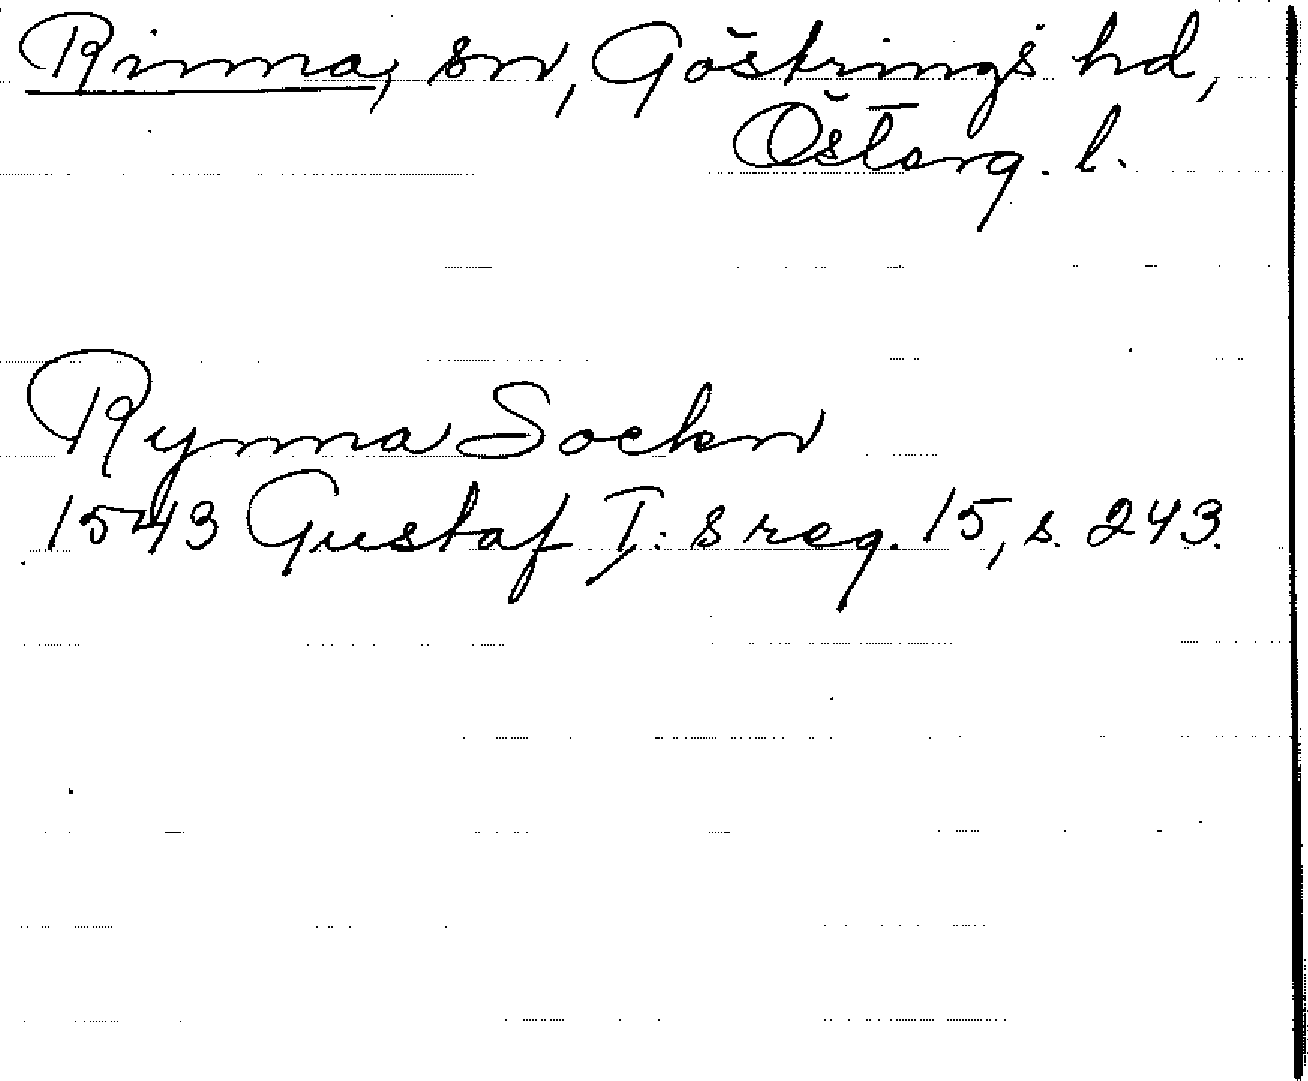 Rinna, sn, Göstrings hd,
Österg. l.
Rynna Sockn
1543 Gustaf I:s reg. 15, s. 243.